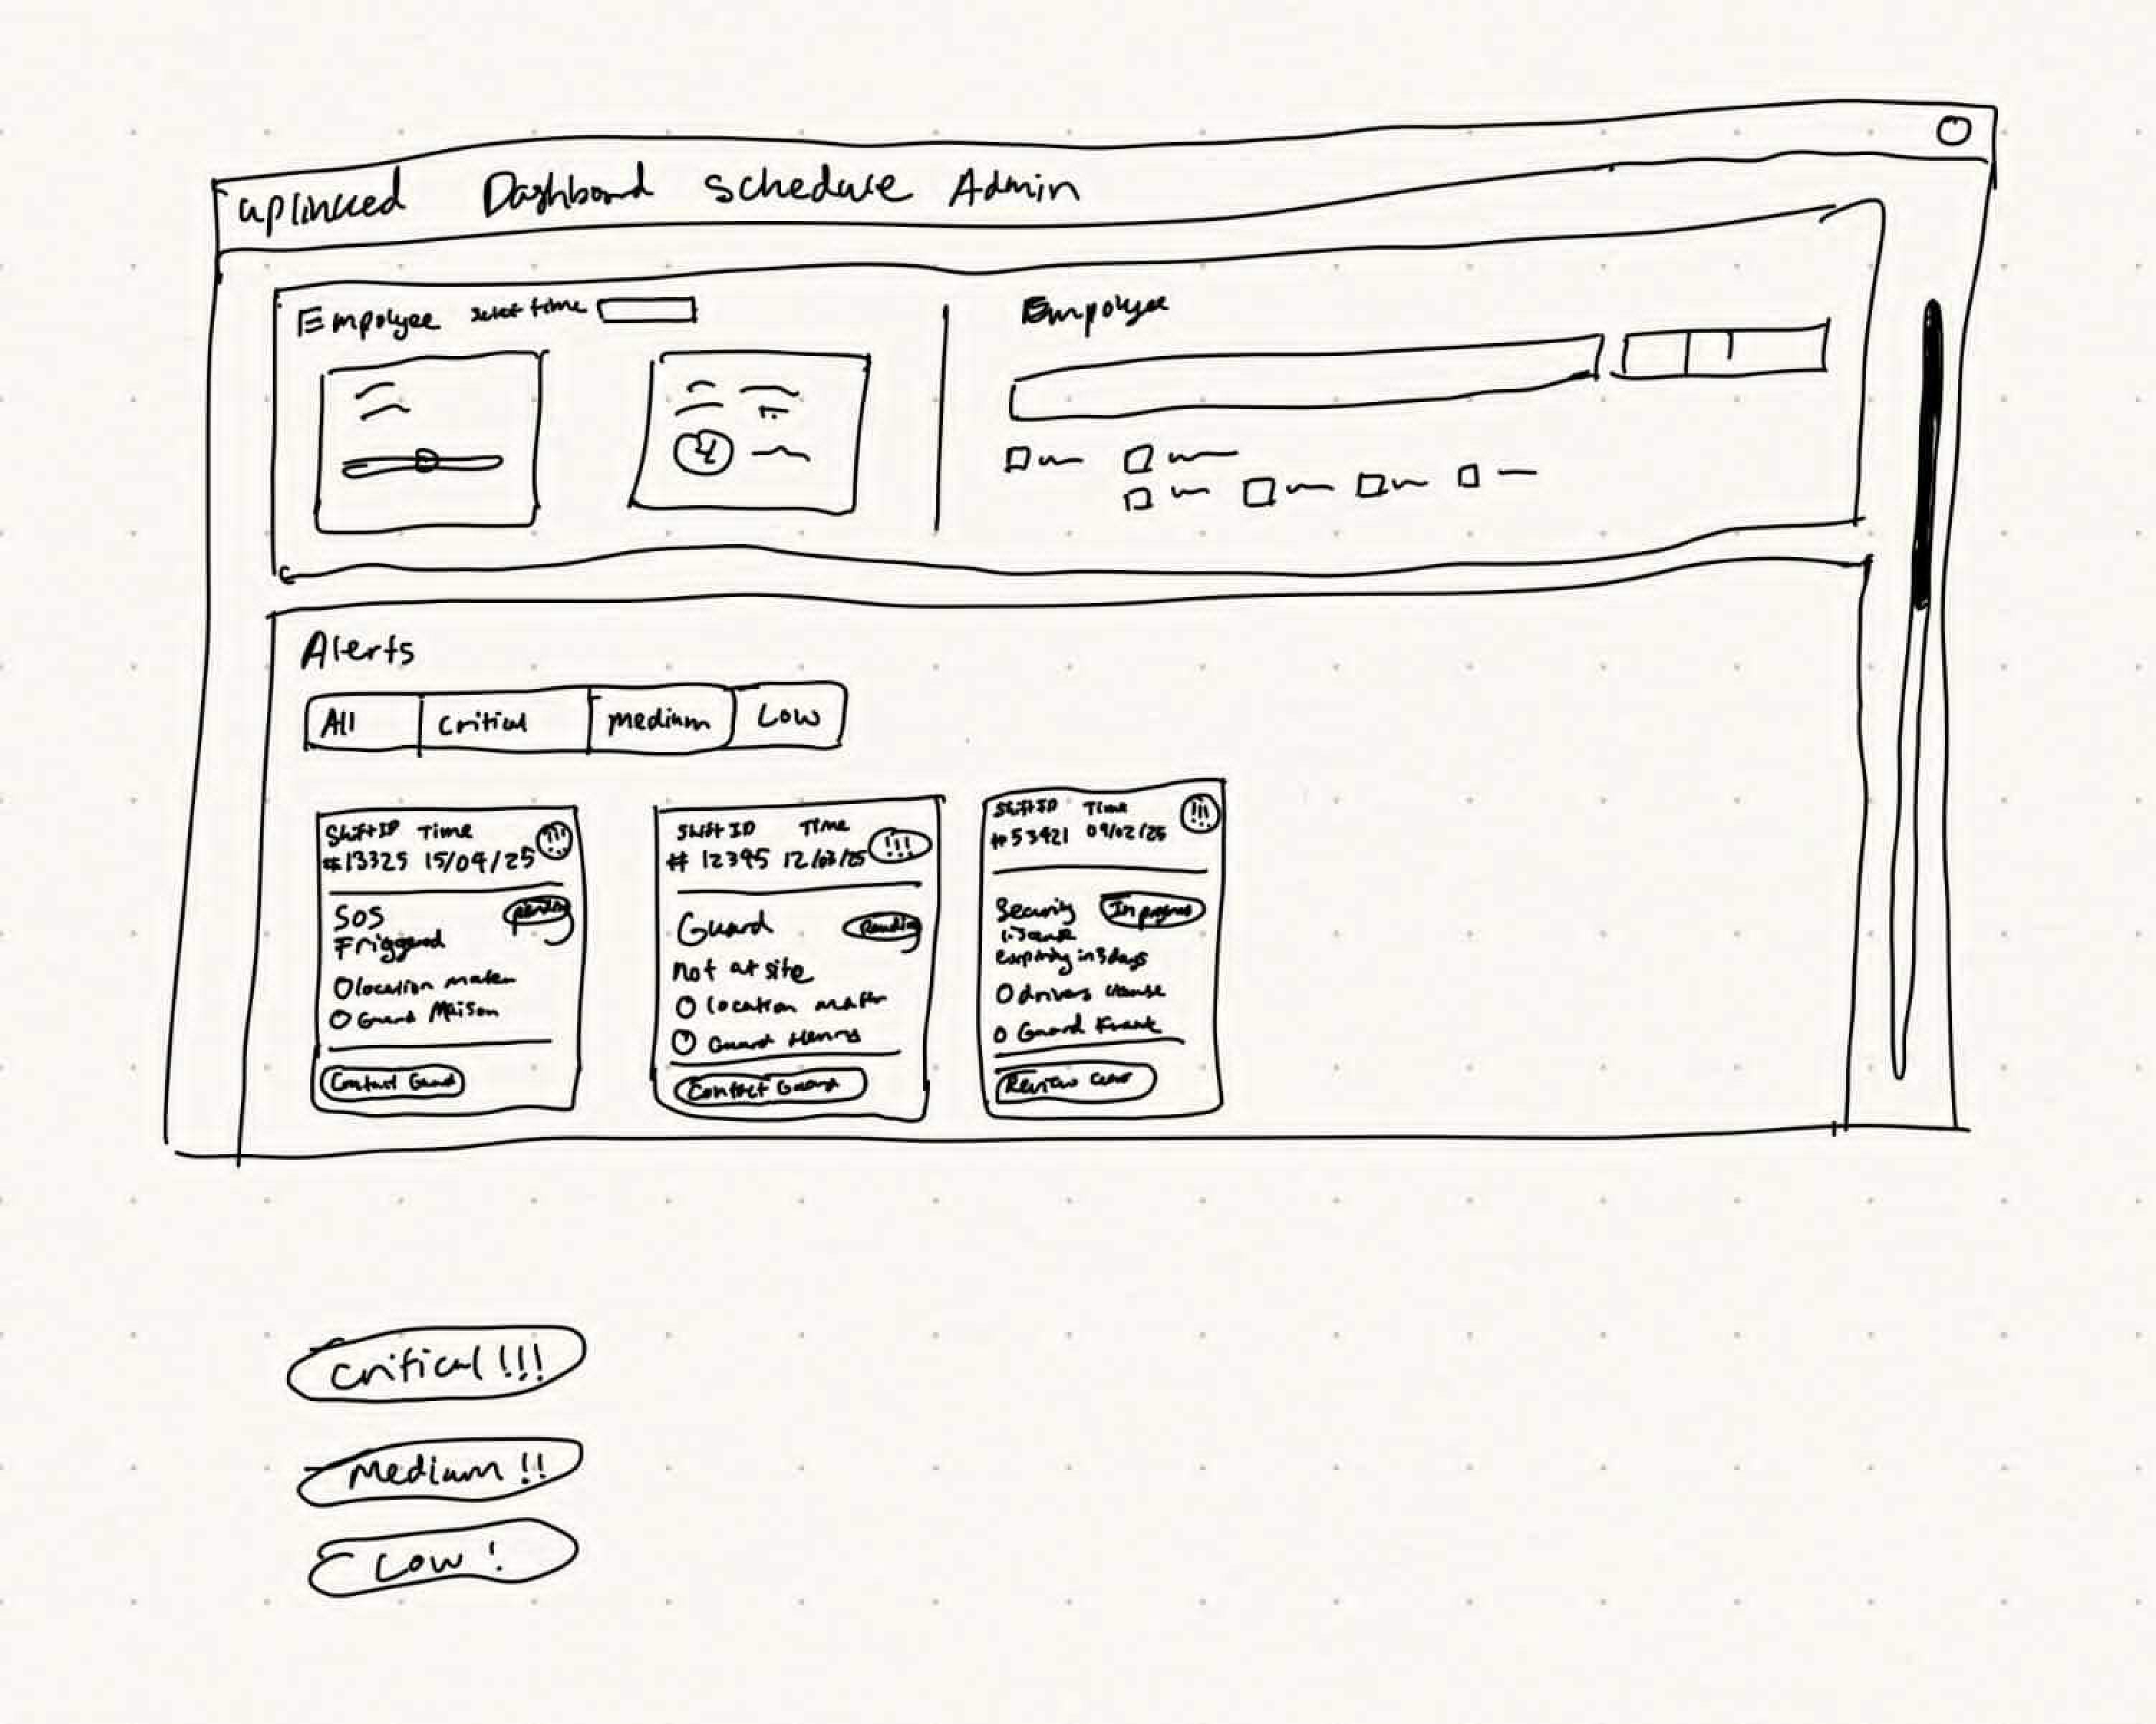 uplincced Dashboard schedule Admin
Empolyee Select time
Empolyee
Alerts
All Critical medium Low
Shift ID Time !!!
#13325 15/04/25
SOS pending
Friggered
location
Guard Maison
Contact Guard
Shift ID Time !!!
# 12395 12/03/25
Guard Pending
not at site
location
Guard Henry
Contact Guard
Shift ID Time !!!
#53421 09/02/25
Security In progress
expiring in 3 days
drivers
Guard Frank
Review
Critical !!!
Medium !!
Low !